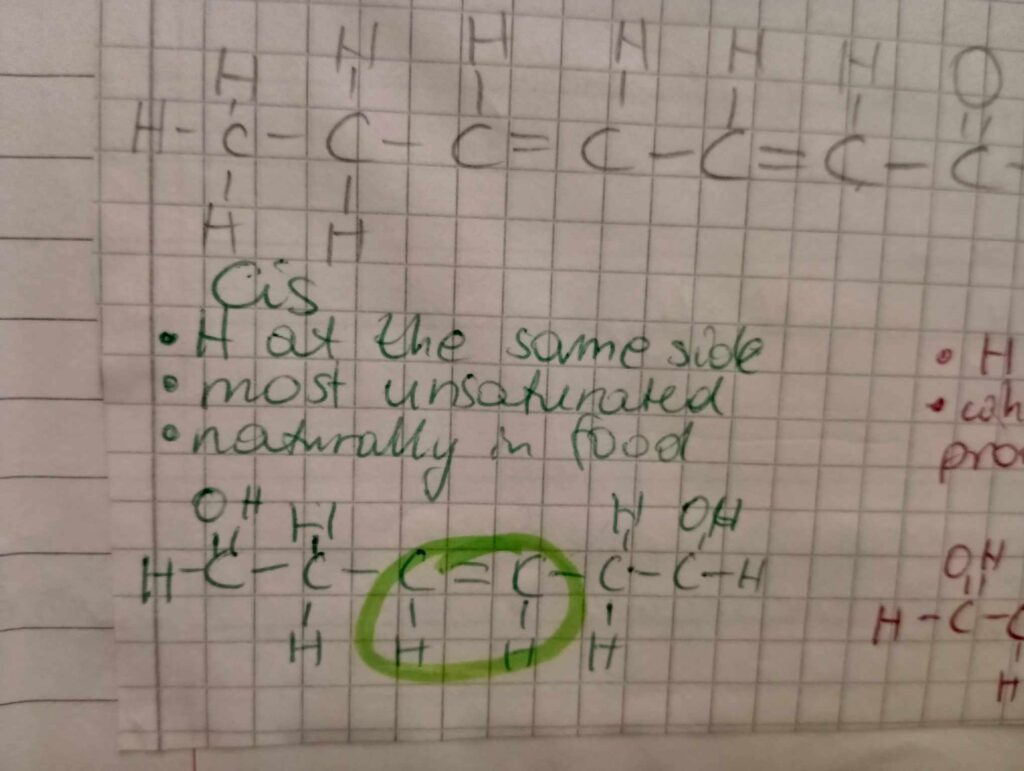 H H H H H H O
H - C - C - C = C - C = C - C -
H H
Cis
• H at the same side
• most unsaturated
• naturally in food
OH H H OH
H - C - C - C = C - C - C - H
H H H H
• H
• wh
pro
OH
H - C - C
H